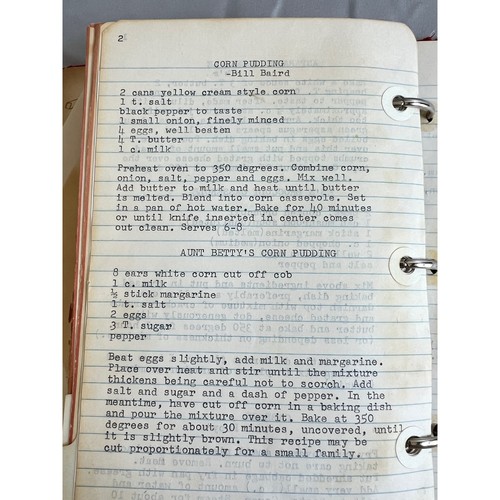 2
CORN PUDDING
-Bill Baird
2 cans yellow cream style corn
1 t. salt
black pepper to taste
1 small onion, finely minced
4 eggs, well beaten
4 T. butter
1 c. milk
Preheat oven to 350 degrees. Combine corn,
onion, salt, pepper and eggs. Mix well.
Add butter to milk and heat until butter
is melted. Blend into corn casserole. Set
in a pan of hot water. Bake for 40 minutes
or until knife inserted in center comes
out clean. Serves 6-8
AUNT BETTY'S CORN PUDDING
8 ears white corn cut off cob
1 c. milk
½ stick margarine
1 t. salt
2 eggs
3 T. sugar
pepper
Beat eggs slightly, add milk and margarine.
Place over heat and stir until the mixture
thickens being careful not to scorch. Add
salt and sugar and a dash of pepper. In the
meantime, have cut off corn in a baking dish
and pour the mixture over it. Bake at 350
degrees for about 30 minutes, uncovered, until
it is slightly brown. This recipe may be
cut proportionately for a small family.